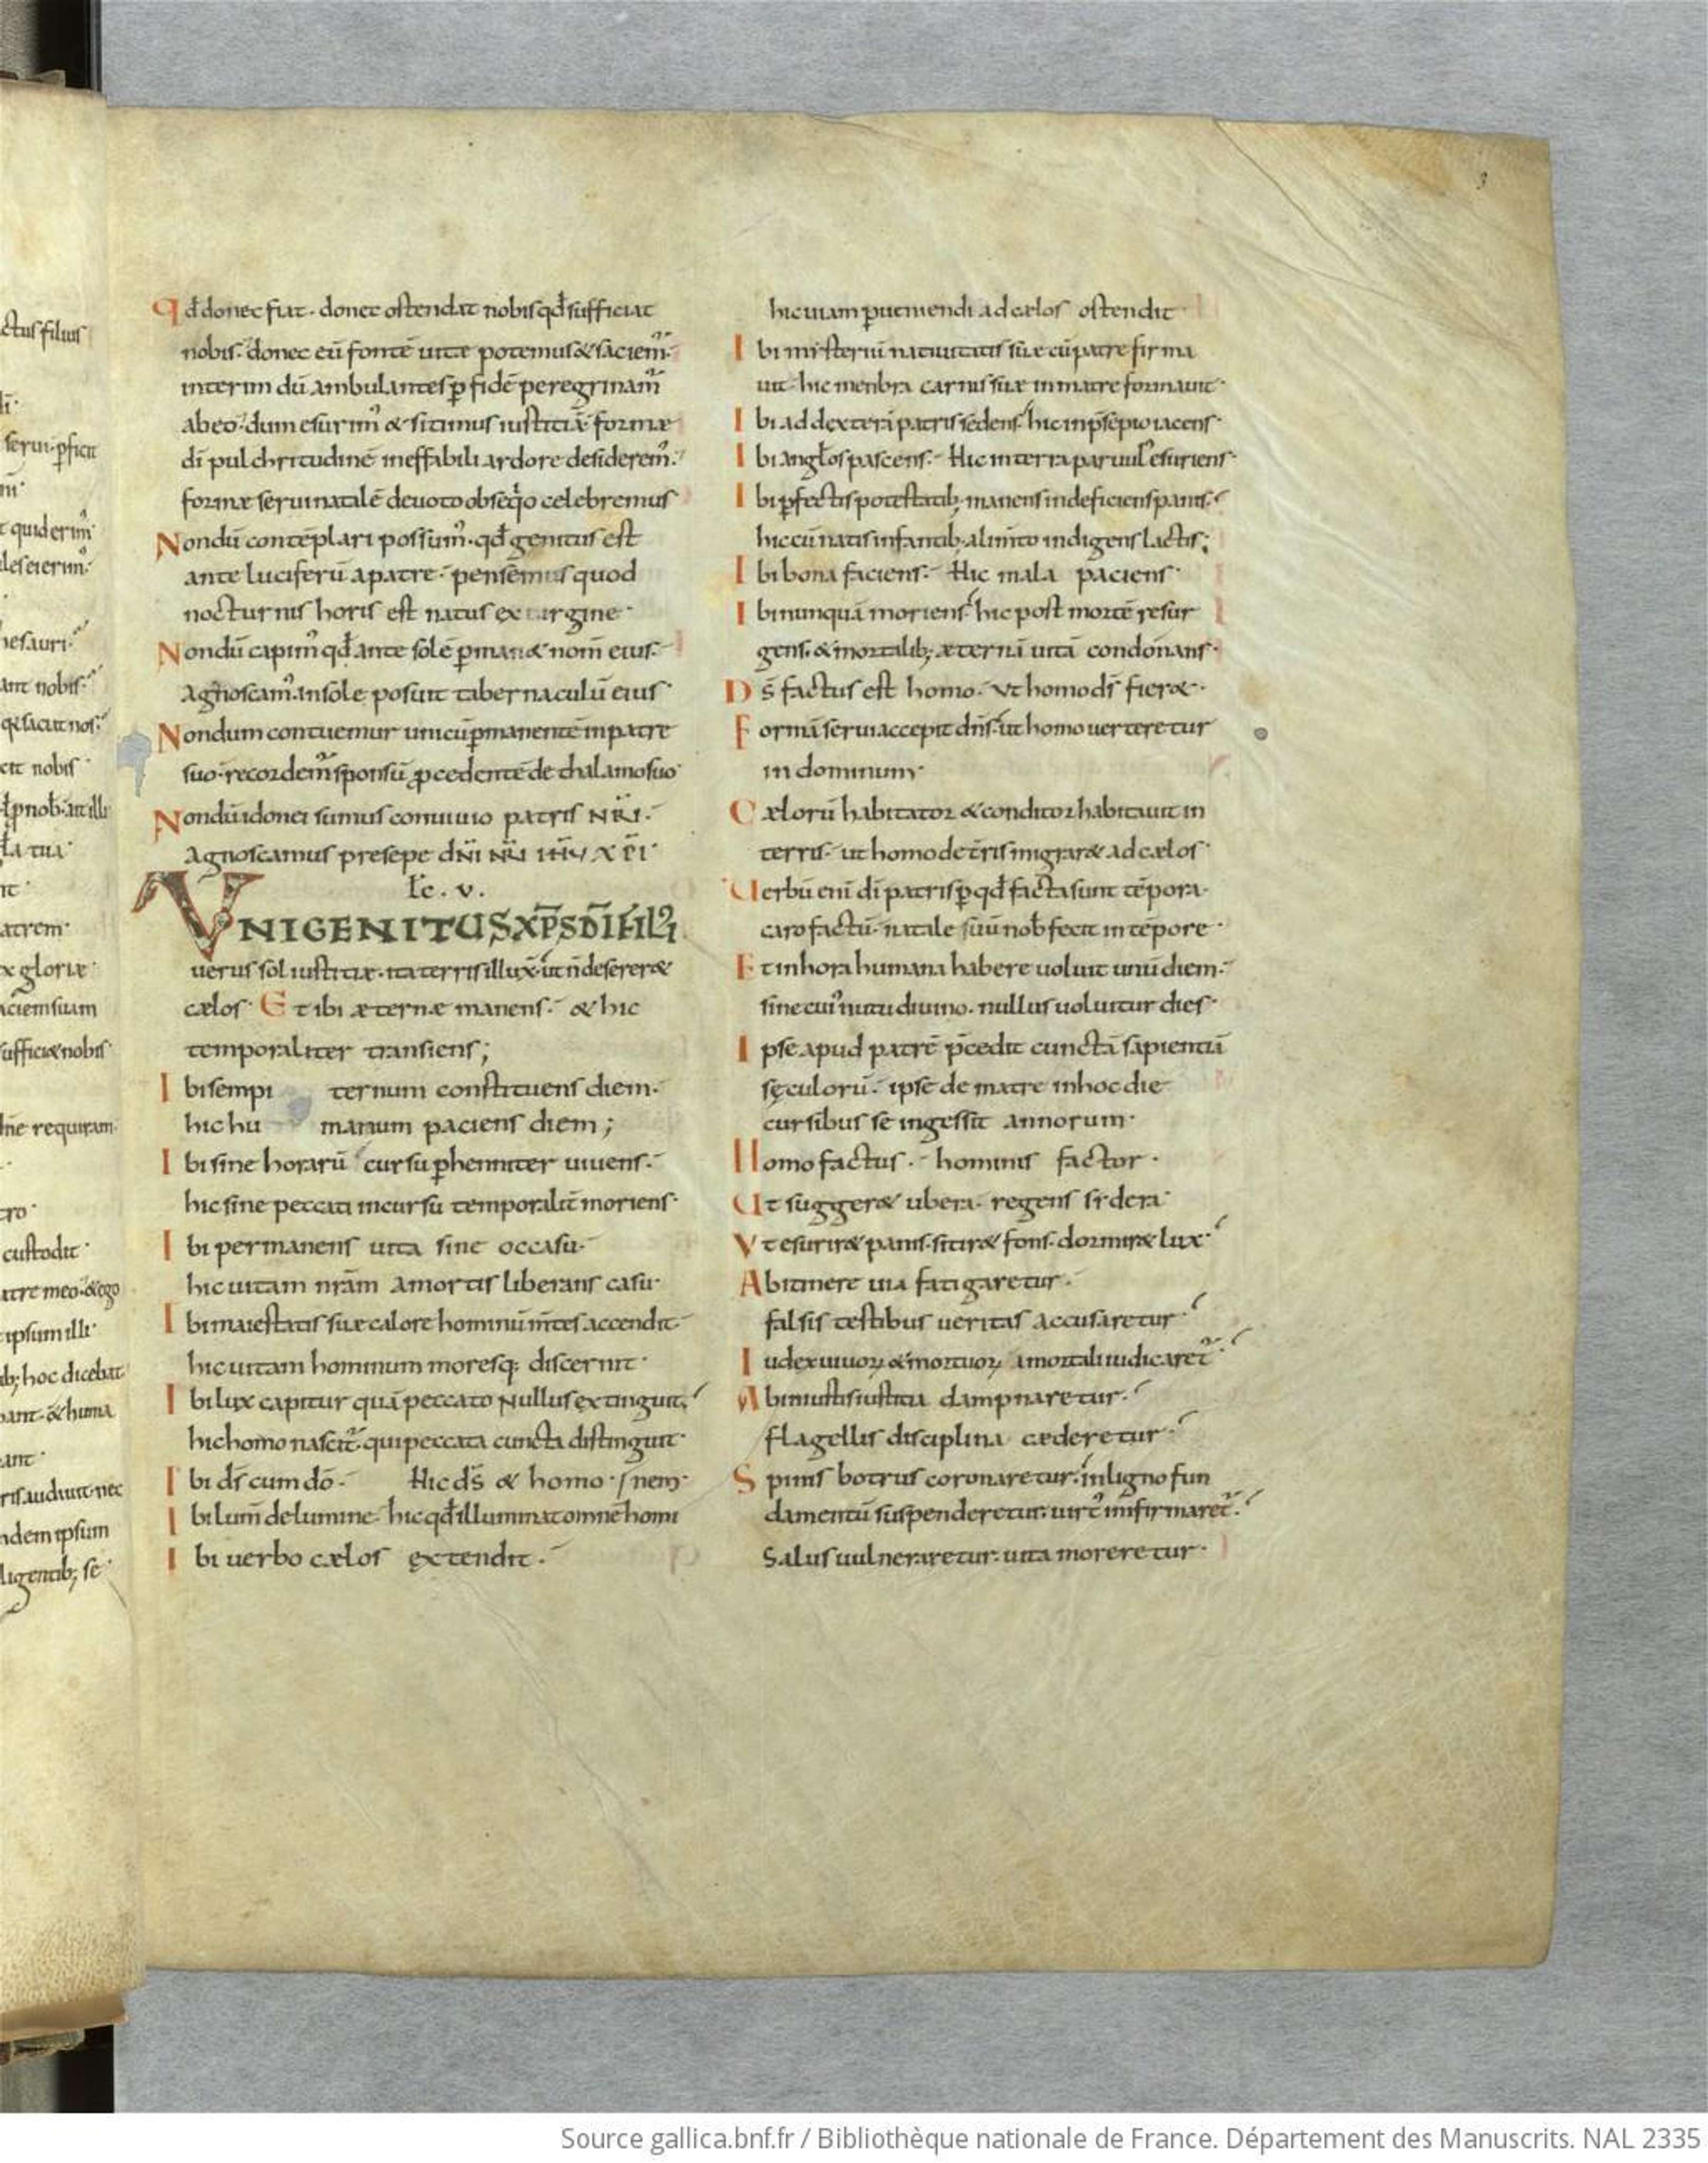 ctus filius
serui. pficit
quiderimꝰ
hesauri.
ant nobis.
cit nobis
ła tua
atrem
x gloriæ
aciem suam
sufficit&nobis
ne requiram
custodit
atre meo. & ego
ipsum illi
ib; hoc dicebat
ant. & huma
ris audiunt. nec
idem ipsum
ligentib; se
3
Qđ donec fiat. donec ostendat nobis qđ sufficiat
nobis. donec eū fontē uitæ potemus & saciemꝰ.
interim dū ambulantes ꝑ fidē peregrinamꝰ
ab eo. dum esurimꝰ & sitimus iustitiā. formæ
dī pulchritudinē ineffabili ardore desideremꝰ.
formæ serui natalē deuoto obseqio celebremus
Nondū contēplari possumꝰ. qđ genitus est
ante luciferū a patre. pensemus quod
nocturnis horis est natus ex uirgine.
Nondū capimꝰ qđ ante solē ꝑman& nom̄ eius.
Agnoscamꝰ. in sole posuit tabernaculū eius.
Nondum contuemur unicū ꝑmanentē in patre
suo. recordemꝰ sponsū ꝓcedentē de thalamo suo.
Nondū idonei sumus conuiuio patris NRI.
Agnoscamus presepe dn̄i NRI IHU XPI.
łc. v.
VNIGENITUS XP̄S DĪ FILꝰ
uerus sol iustitiæ. ita terris illux. ut n̄ deserer&
cælos. Et ibi æternæ manens. & hic
temporaliter transiens;
Ibi sempi ternum constituens diem.
hic hu manum paciens diem;
Ibi sine horarū cursu ꝑhenniter uiuens.
hic sine peccati incursu temporalit̄ moriens.
Ibi permanens uita sine occasu.
hic uitam nr̄am a mortis liberans casu.
Ibi maiestatis suæ calore hominū m̄tes accendit.
hic uitam hominum moresq; discernit.
Ibi lux capitur quā peccato nullus extinguit.
hic homo nascit̄. qui peccata cuncta distinguit.
Ibi dś cum dō. Hic dś & homo. / nem.
Ibi lum̄ de lumine. hic qđ illuminat omnē homi
Ibi uerbo cælos extendit.
hic uiam ꝑueniendi ad cælos ostendit
Ibi misteriū natiuitatis suæ cū patre firma
uit. hic menbra carnis suæ in matre formauit.
Ibi ad dexterā patris sedens. hic in p̄sepio iacens.
Ibi angłos pascens. Hic in terra paruulꝰ esuriens.
Ibi ꝑfectis potestatib; manens indeficiens panis.
hic cū natis infantib; alim̄to indigens lactis;
Ibi bona faciens. Hic mala paciens.
Ibi nunquā moriens. hic post mortē resur
gens. & mortalib; æternā uitā condonans.
Dś factus est homo. Vt homo dś fier&.
Formā serui accepit dn̄s. ut homo uerteretur
in dominum.
Cælorū habitator & conditor habitauit in
terris. ut homo de t̄ris migrar& ad cælos.
Uerbū eni dī patris ꝑ qđ facta sunt tēpora.
caro factū. natale suū nob fecit in tēpore.
Et in hora humana habere uoluit unū diem.
sine cuiꝰ nutu diuino. nullus uoluitur dies.
Ipse apud patrē p̄cedit cunctā sapientiā
sęculorū. ipse de matre in hoc die
cursibus se ingessit annorum.
Homo factus. hominis factor.
Ut sugger& ubera. regens sidera.
Vt esurir& panis. sitir& fons. dormir& lux.
Ab itinere uia fatigaretur.
falsis testibus ueritas accusaretur
Iudex uiuoꝝ & mortuoꝝ a mortali iudicaret̄.
Ab iniustis iustitia dampnaretur.
flagellis disciplina cæderetur.
Spinis botrus coronaretur. in ligno fun
damentū suspenderetur. uirtꝰ infirmaret̄.
Salus uulneraretur. uita moreretur.
Source gallica.bnf.fr / Bibliothèque nationale de France. Département des Manuscrits. NAL 2335